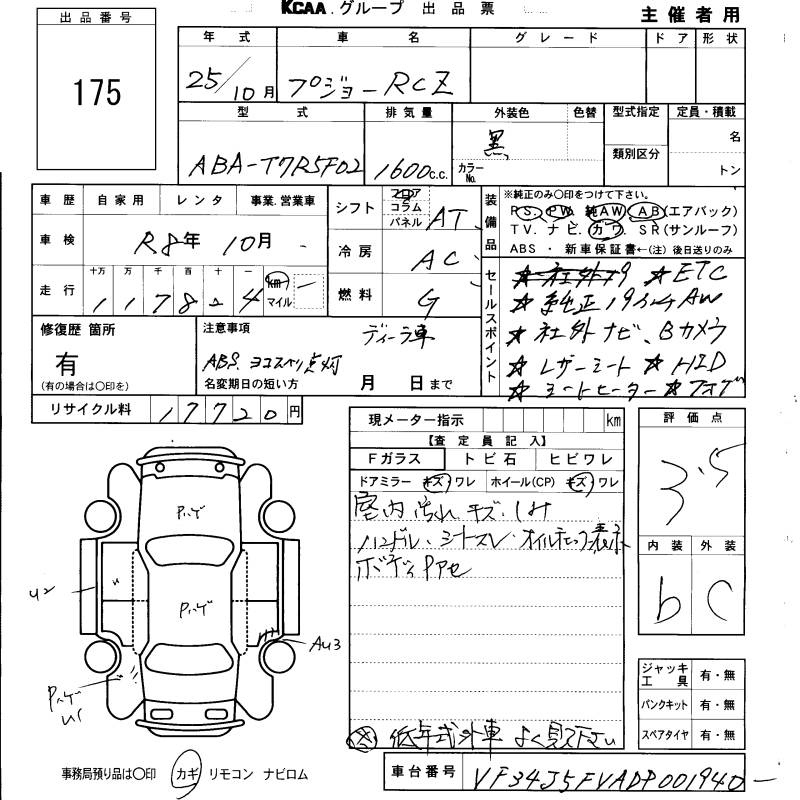 KCAA.グループ 出品票
主催者用
出品番号
175
年式 車名 グレード ドア 形状
25/10月 プジョーRCZ
型式 排気量 外装色 色替 型式指定 定員・積載
黒 名
類別区分
ABA-T7R5F02 1600c.c. カラーNo. トン
車歴 自家用 レンタ 事業.営業車
シフト フロア コラム パネル AT
装備品 ※純正のみ〇印をつけて下さい。
PS. PW 純AW AB(エアバック)
TV. ナビ. カワ. SR(サンルーフ)
ABS ・ 新車保証書←(注)後日送りのみ
車検 R8年 10月
冷房 AC
走行 十万 万 千 百 十 一
117824 km マイル
燃料 G
セールスポイント
★社外19 ★ETC
★純正19インチAW
★社外ナビ、Bカメラ
★レザーシート ★HID
★シートヒーター ★フォグ
修復歴 箇所
有
(有の場合は〇印を)
注意事項 ディーラ車
ABS ヨコスベリ点灯
名変期日の短い方 月 日まで
リサイクル料 17720円
現メーター指示 km
【査定員記入】
Fガラス トビ石 ヒビワレ
ドアミラー キズ ワレ ホイール(CP) キズ ワレ
室内汚れ キズ・シミ
ハンドル・シートスレ・オイルチェック表示
ボディPアセ
㊟ 低年式外車 よく見て下さい
評価点
3.5
内装 外装
b C
ジャッキ工具 有・無
パンクキット 有・無
スペアタイヤ 有・無
Pハゲ
Pハゲ
U2
AU3
Pハゲ
U1
事務局預り品は〇印 カギ リモコン ナビロム
車台番号 VF34J5FVADP001940